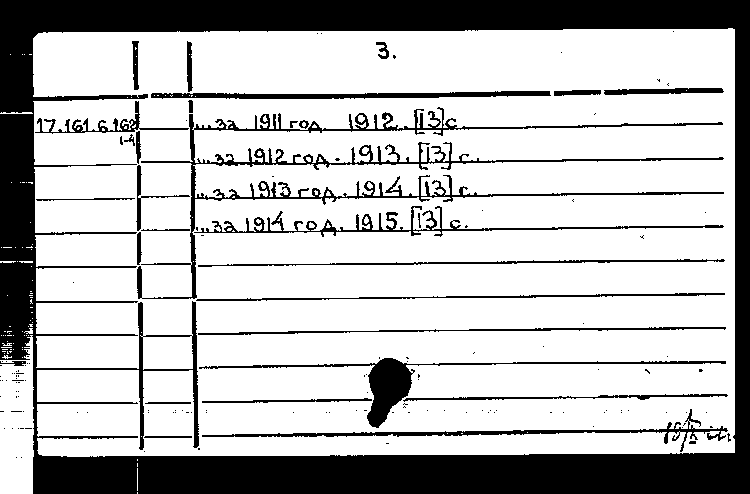 3.
17.161.6.162 ...за 1911 год. 1912. [13] с.
1-4
...за 1912 год. 1913. [13] с.
...за 1913 год. 1914. [13] с.
...за 1914 год. 1915. [13] с.